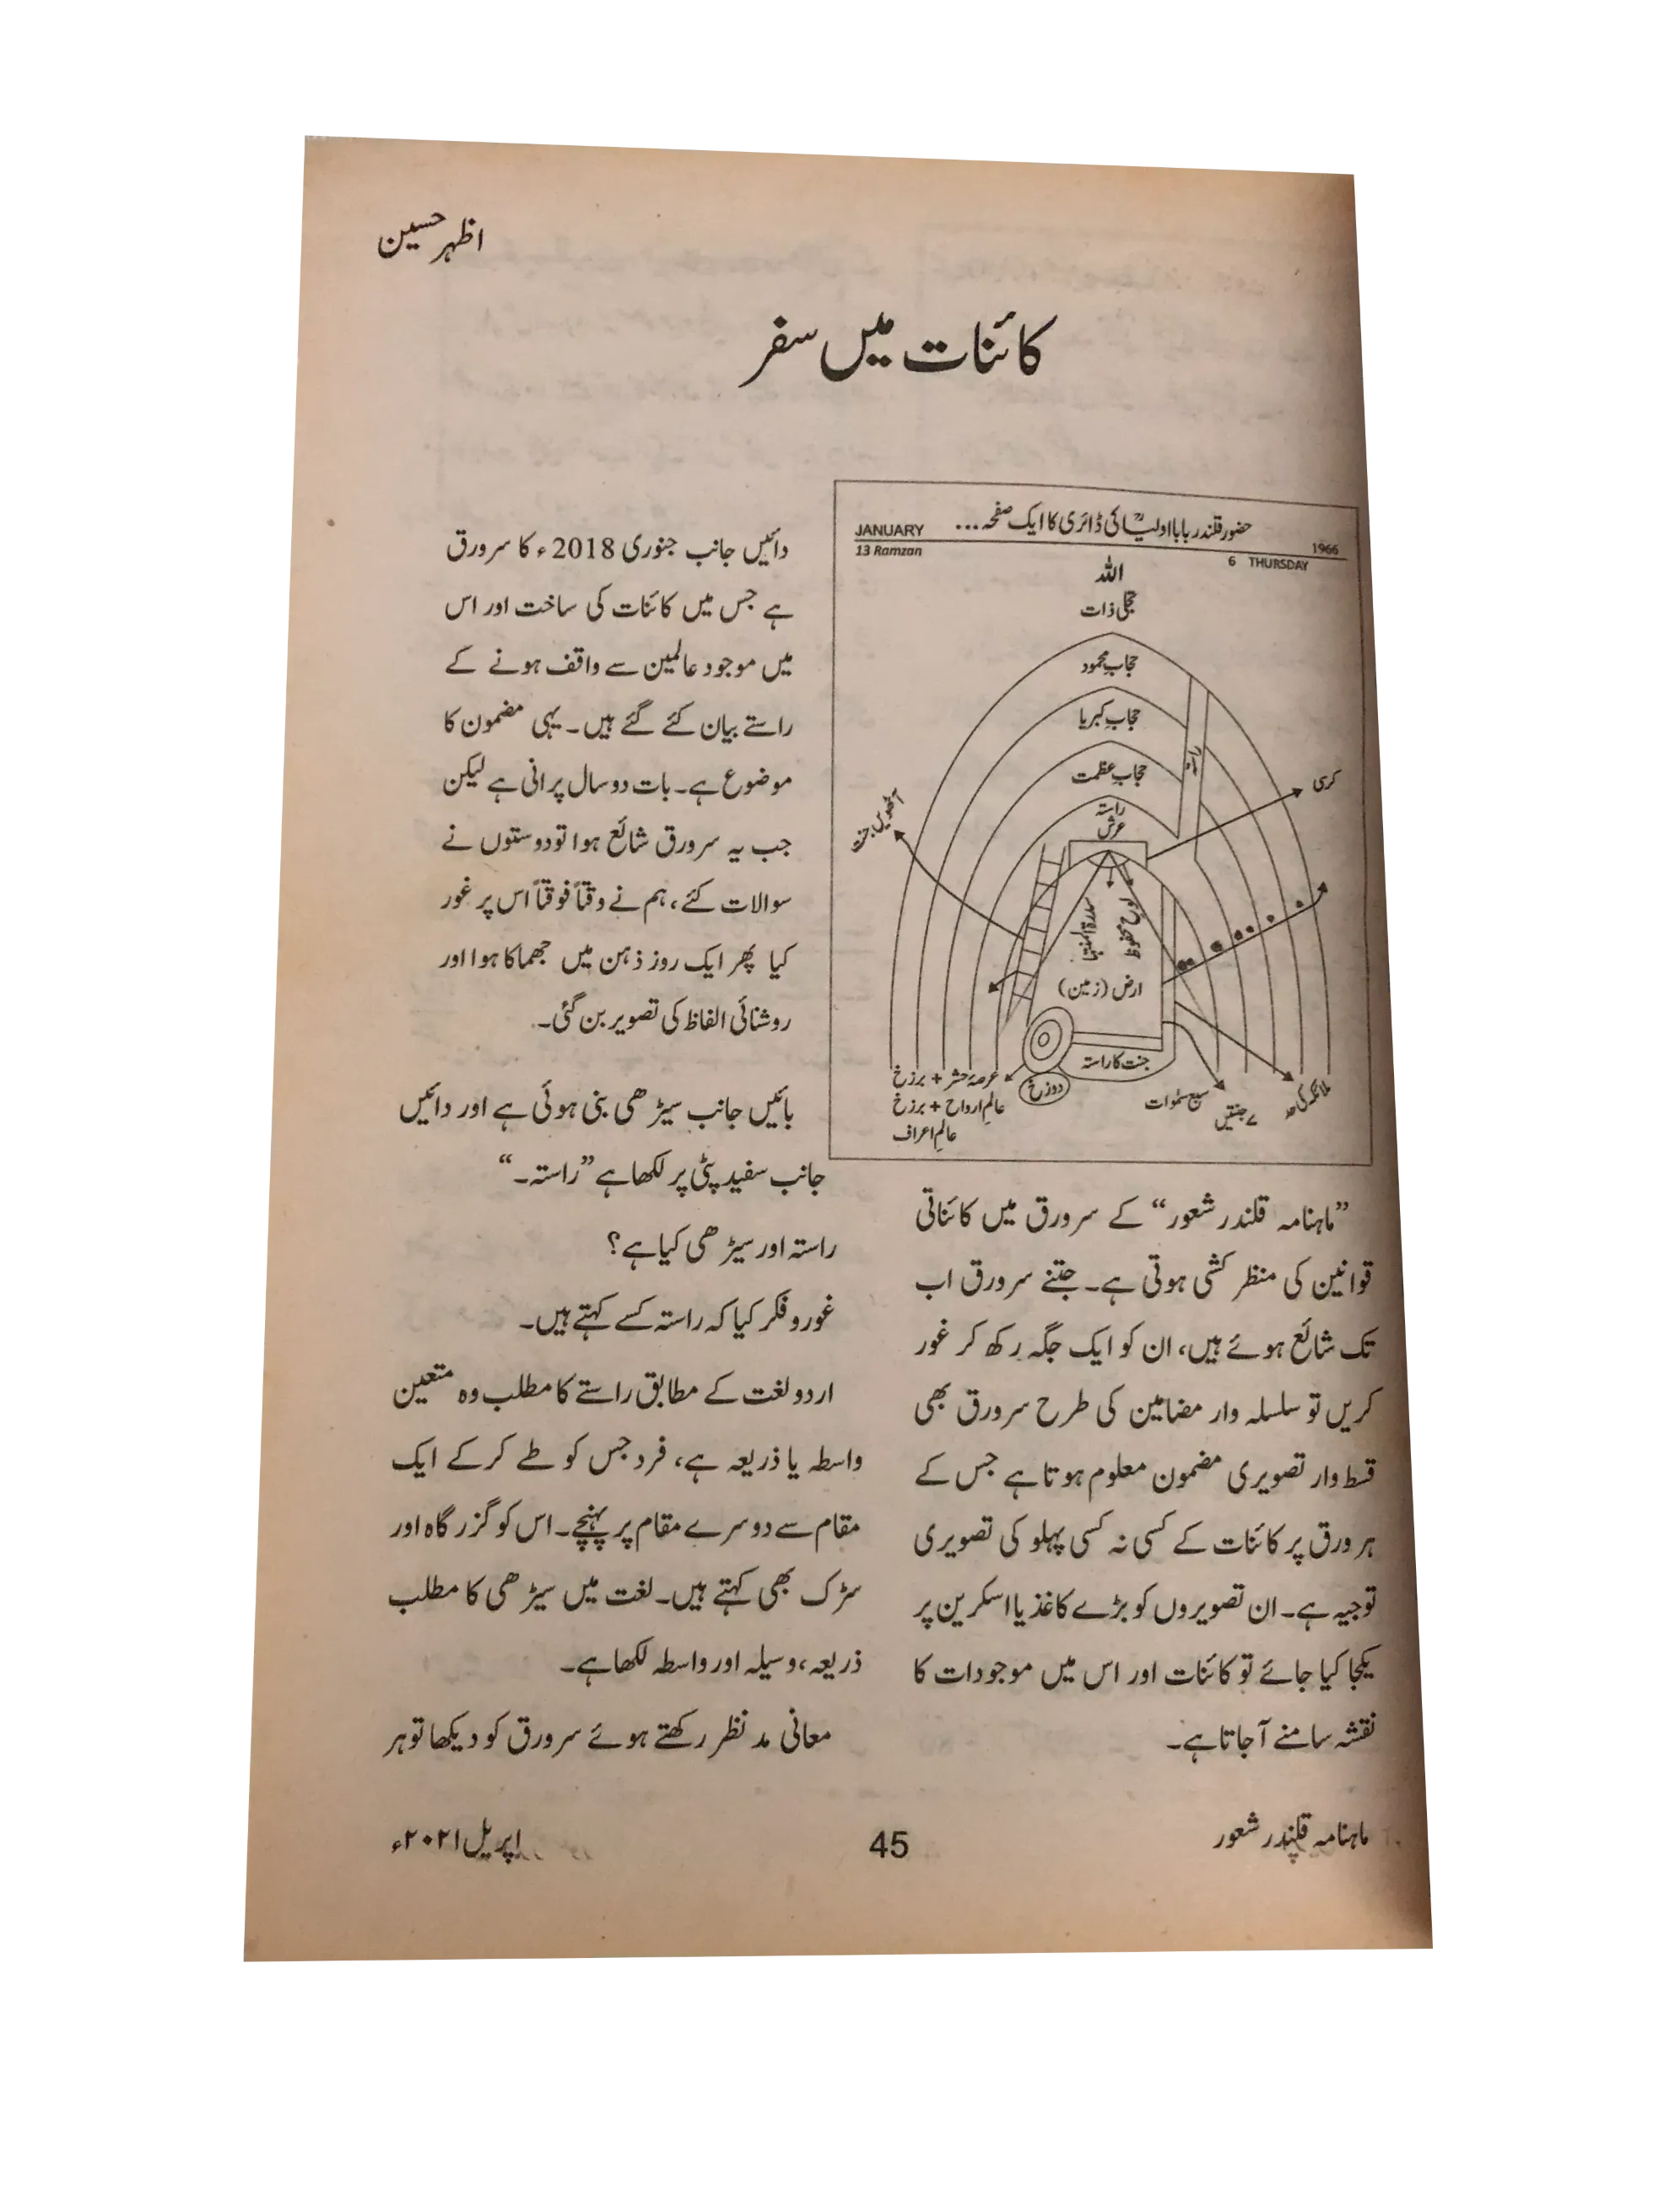 اظہر حسین
کائنات میں سفر
حضور قلندر بابا اولیاؒ کی ڈائری کا ایک صفحہ...
JANUARY
1966
13 Ramzan
6 THURSDAY
اللہ
تجلی ذات
حجاب محمود
حجاب کبریا
حجاب عظمت
راستہ
عرش
راستہ
کرسی
آٹھویں جنت
سدرۃ المنتہیٰ
لوح محفوظ
ارض (زمین)
جنت کا راستہ
دوزخ
عرصۂ حشر + برزخ
عالم ارواح + برزخ
عالم اعراف
سبع سمٰوات
۷ جنتیں
ملائکہ کی حد
”ماہنامہ قلندر شعور“ کے سرورق میں کائناتی
قوانین کی منظر کشی ہوتی ہے۔ جتنے سرورق اب
تک شائع ہوئے ہیں، ان کو ایک جگہ رکھ کر غور
کریں تو سلسلہ وار مضامین کی طرح سرورق بھی
قسط وار تصویری مضمون معلوم ہوتا ہے جس کے
ہر ورق پر کائنات کے کسی نہ کسی پہلو کی تصویری
توجیہ ہے۔ ان تصویروں کو بڑے کاغذ یا اسکرین پر
یکجا کیا جائے تو کائنات اور اس میں موجودات کا
نقشہ سامنے آجاتا ہے۔
دائیں جانب جنوری 2018ء کا سرورق
ہے جس میں کائنات کی ساخت اور اس
میں موجود عالمین سے واقف ہونے کے
راستے بیان کئے گئے ہیں۔ یہی مضمون کا
موضوع ہے۔ بات دو سال پرانی ہے لیکن
جب یہ سرورق شائع ہوا تو دوستوں نے
سوالات کئے، ہم نے وقتاً فوقتاً اس پر غور
کیا پھر ایک روز ذہن میں جھماکا ہوا اور
روشنائی الفاظ کی تصویر بن گئی۔
بائیں جانب سیڑھی بنی ہوئی ہے اور دائیں
جانب سفید پٹی پر لکھا ہے ”راستہ۔“
راستہ اور سیڑھی کیا ہے؟
غور و فکر کیا کہ راستہ کسے کہتے ہیں۔
اردو لغت کے مطابق راستے کا مطلب وہ متعین
واسطہ یا ذریعہ ہے، فرد جس کو طے کر کے ایک
مقام سے دوسرے مقام پر پہنچے۔ اس کو گزر گاہ اور
سڑک بھی کہتے ہیں۔ لغت میں سیڑھی کا مطلب
ذریعہ، وسیلہ اور واسطہ لکھا ہے۔
معانی مد نظر رکھتے ہوئے سرورق کو دیکھا تو ہر
ماہنامہ قلندر شعور
45
اپریل ۲۰۲۱ء